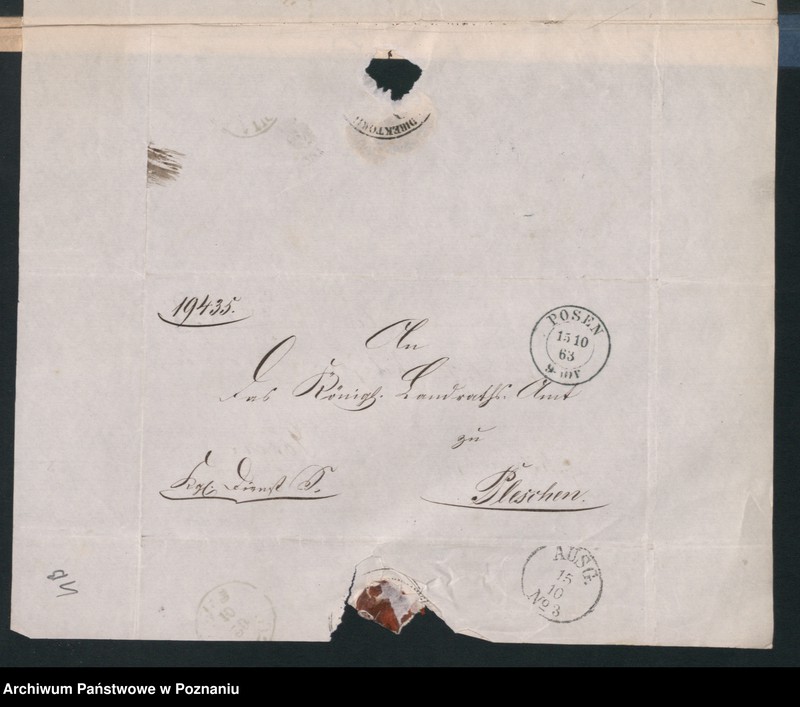 DIREKTORI
19435.
An
POSEN
15 10
63
Das Königl. Landraths-Amt
zu
Kgl. Dienst S.
Pleschen.
AUSG.
15
10
No 3
10
Archiwum Państwowe w Poznaniu